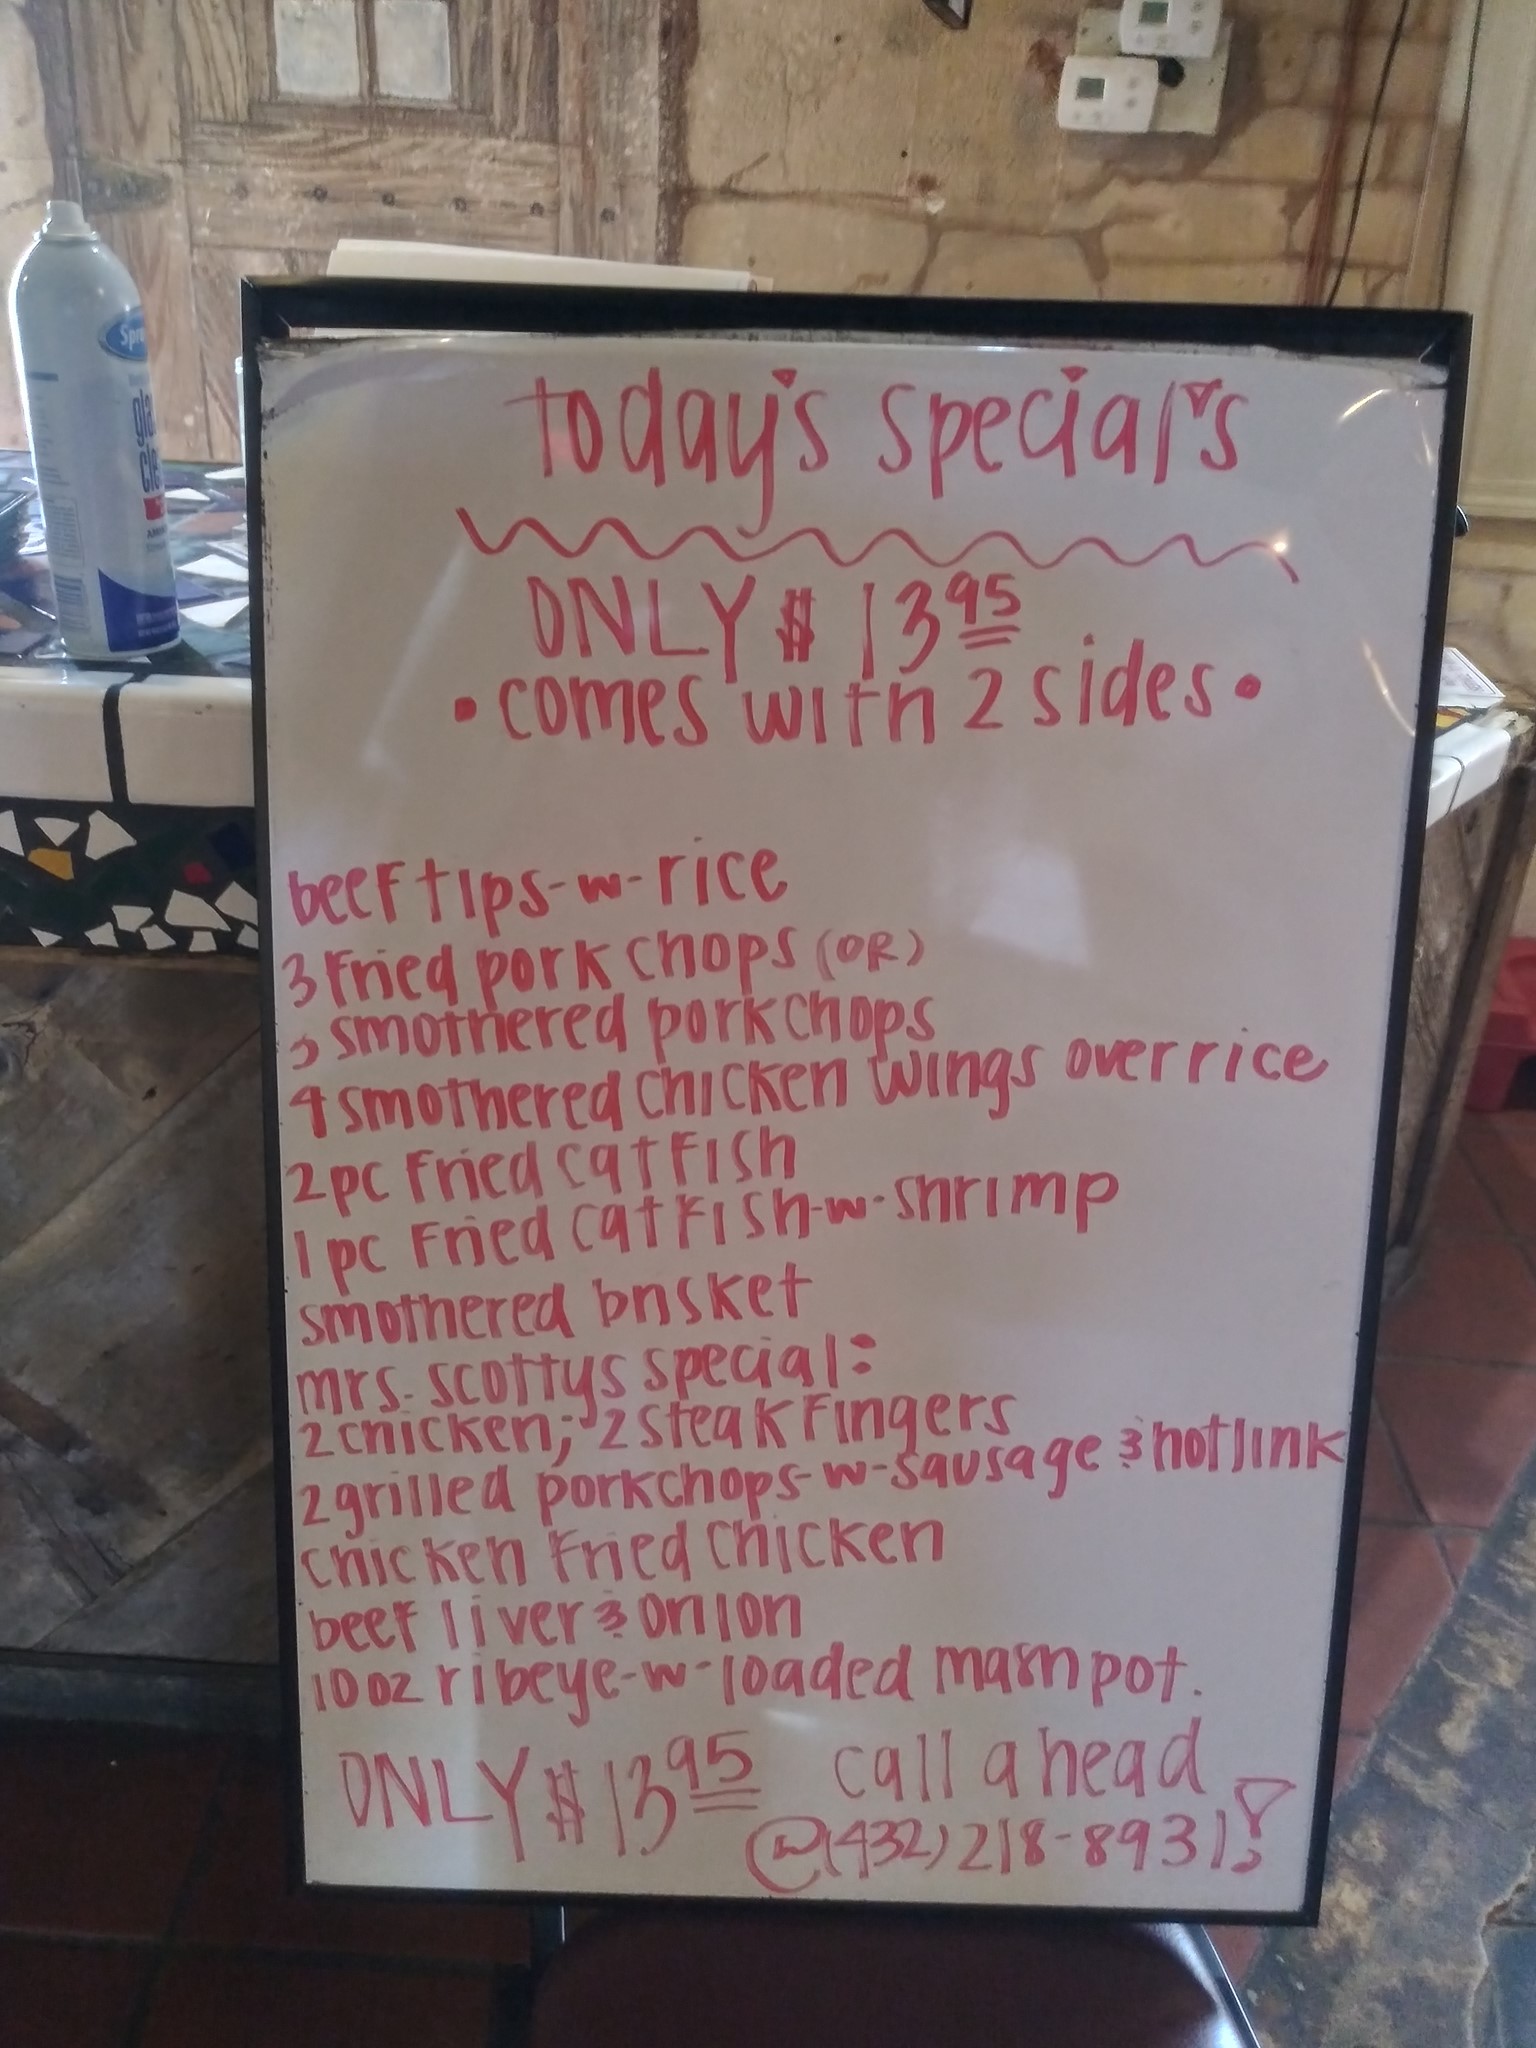 today's special's
ONLY $ 13 95
• comes with 2 sides •
beef tips-w-rice
3 fried pork chops (OR)
3 smothered pork chops
4 smothered chicken wings over rice
2 pc fried catfish
1 pc fried catfish-w-shrimp
smothered brisket
mrs. scottys special:
2 chicken; 2 steak fingers
2 grilled porkchops-w-sausage & hotlink
chicken fried chicken
beef liver & onion
10 oz ribeye-w-loaded mash pot.
ONLY $ 13 95 call ahead
@ (432) 218-8931!